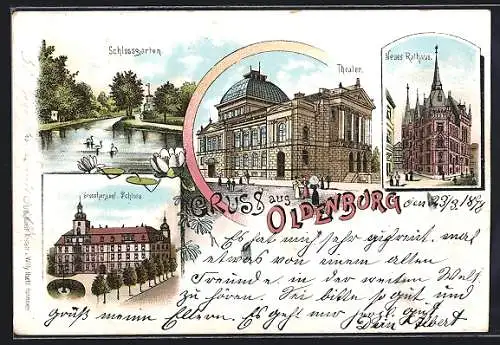 Schlossgarten.
Theater.
Neues Rathaus.
Grossherzogl. Schloss
GRUSS aus OLDENBURG
den 23/3 189
Es hat mich sehr gefreut, mal
etwas von einem alten
Freunde in der weiten Welt
zu hören. Sei bitte so gut und
grüß meine Eltern. Es geht mir
Dein Albert